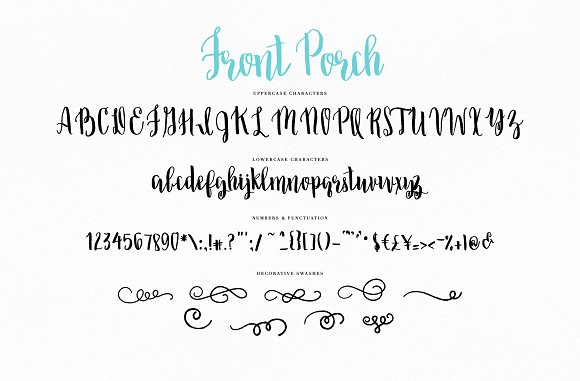 Front Porch
UPPERCASE CHARACTERS
ABCDEFGHIJKLMNOPQRSTUVWXYZ
LOWERCASE CHARACTERS
abcdefghijklmnopqrstuvwxyz
NUMBERS & PUNCTUATION
1234567890*\:,!#.?"';/~^_{}[]()-""''•$€£¥=><-%+|@&
DECORATIVE SWASHES